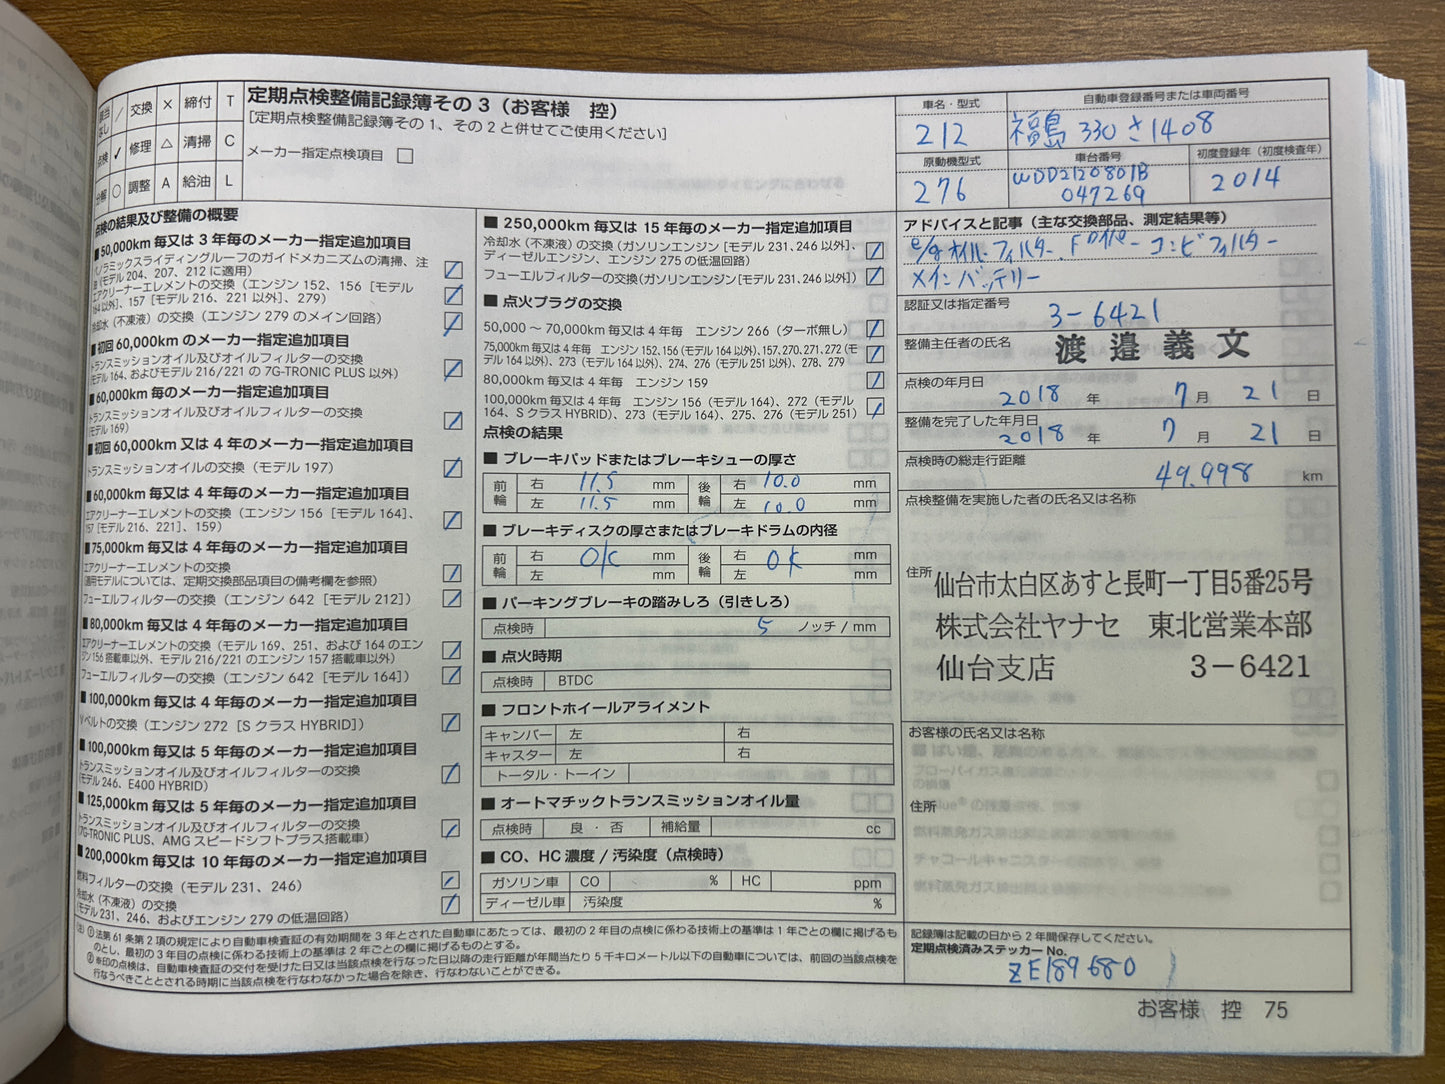 該当なし ／ 交換 × 締付 T
点検 ✓ 修理 △ 清掃 C
分解 ○ 調整 A 給油 L
定期点検整備記録簿その３（お客様　控）
［定期点検整備記録簿その１、その２と併せてご使用ください］
メーカー指定点検項目 □
車名・型式
212
自動車登録番号または車両番号
福島 330 さ 1408
原動機型式
276
車台番号
WDD2120801B
047269
初度登録年（初度検査年）
2014
点検の結果及び整備の概要
■ 50,000km 毎又は 3 年毎のメーカー指定追加項目
パノラミックスライディングルーフのガイドメカニズムの清掃、注
油（モデル 204、207、212 に適用）
エアクリーナーエレメントの交換（エンジン 152、156［モデル
164 以外］、157［モデル 216、221 以外］、279）
冷却水（不凍液）の交換（エンジン 279 のメイン回路）
■ 初回 60,000km のメーカー指定追加項目
トランスミッションオイル及びオイルフィルターの交換
（モデル 164、およびモデル 216/221 の 7G-TRONIC PLUS 以外）
■ 60,000km 毎のメーカー指定追加項目
トランスミッションオイル及びオイルフィルターの交換
（モデル 169）
■ 初回 60,000km 又は 4 年毎のメーカー指定追加項目
トランスミッションオイルの交換（モデル 197）
■ 60,000km 毎又は 4 年毎のメーカー指定追加項目
エアクリーナーエレメントの交換（エンジン 156［モデル 164］、
157［モデル 216、221］、159）
■ 75,000km 毎又は 4 年毎のメーカー指定追加項目
エアクリーナーエレメントの交換
（適用モデルについては、定期交換部品項目の備考欄を参照）
フューエルフィルターの交換（エンジン 642［モデル 212］）
■ 80,000km 毎又は 4 年毎のメーカー指定追加項目
エアクリーナーエレメントの交換（モデル 169、251、および 164 のエン
ジン 156 搭載車以外、モデル 216/221 のエンジン 157 搭載車以外）
フューエルフィルターの交換（エンジン 642［モデル 164］）
■ 100,000km 毎又は 4 年毎のメーカー指定追加項目
Vベルトの交換（エンジン 272［S クラス HYBRID］）
■ 100,000km 毎又は 5 年毎のメーカー指定追加項目
トランスミッションオイル及びオイルフィルターの交換
（モデル 246、E400 HYBRID）
■ 125,000km 毎又は 5 年毎のメーカー指定追加項目
トランスミッションオイル及びオイルフィルターの交換
（7G-TRONIC PLUS、AMG スピードシフトプラス搭載車）
■ 200,000km 毎又は 10 年毎のメーカー指定追加項目
燃料フィルターの交換（モデル 231、246）
冷却水（不凍液）の交換
（モデル 231、246、およびエンジン 279 の低温回路）
■ 250,000km 毎又は 15 年毎のメーカー指定追加項目
冷却水（不凍液）の交換（ガソリンエンジン［モデル 231、246 以外］、
ディーゼルエンジン、エンジン 275 の低温回路）
フューエルフィルターの交換（ガソリンエンジン［モデル 231、246 以外］）
■ 点火プラグの交換
50,000 ～ 70,000km 毎又は 4 年毎　エンジン 266（ターボ無し）
75,000km 毎又は 4 年毎　エンジン 152、156（モデル 164 以外）、157、270、271、272（モ
デル 164 以外）、273（モデル 164 以外）、274、276（モデル 251 以外）、278、279
80,000km 毎又は 4 年毎　エンジン 159
100,000km 毎又は 4 年毎　エンジン 156（モデル 164）、272（モデル
164、S クラス HYBRID）、273（モデル 164）、275、276（モデル 251）
点検の結果
■ ブレーキパッドまたはブレーキシューの厚さ
前輪 右 11.5 mm 後輪 右 10.0 mm
左 11.5 mm 左 10.0 mm
■ ブレーキディスクの厚さまたはブレーキドラムの内径
前輪 右 OK mm 後輪 右 OK mm
左 mm 左 mm
■ パーキングブレーキの踏みしろ（引きしろ）
点検時 5 ノッチ / mm
■ 点火時期
点検時 BTDC
■ フロントホイールアライメント
キャンバー 左 右
キャスター 左 右
トータル・トーイン
■ オートマチックトランスミッションオイル量
点検時 良 ・ 否 補給量 cc
■ CO、HC 濃度 / 汚染度（点検時）
ガソリン車 CO % HC ppm
ディーゼル車 汚染度 %
アドバイスと記事（主な交換部品、測定結果等）
E/gオイル・フィルター、Fワイパー コンビフィルター
メインバッテリー
認証又は指定番号
3-6421
整備主任者の氏名
渡邉義文
点検の年月日
2018 年 7 月 21 日
整備を完了した年月日
2018 年 7 月 21 日
点検時の総走行距離
49.998 km
点検整備を実施した者の氏名又は名称
住所
仙台市太白区あすと長町一丁目5番25号
株式会社ヤナセ　東北営業本部
仙台支店　3－6421
お客様の氏名又は名称
住所
記録簿は記載の日から 2 年間保存してください。
定期点検済みステッカー No.
ZE189680
（注）① 法第 61 条第 2 項の規定により自動車検査証の有効期間を 3 年とされた自動車にあたっては、最初の 2 年目の点検に係わる技術上の基準は 1 年ごとの欄に掲げるも
のとし、最初の 3 年目の点検に係わる技術上の基準は 2 年ごとの欄に掲げるものとする。
② ※印の点検は、自動車検査証の交付を受けた日又は当該点検を行なった日以降の走行距離が年間当たり 5 千キロメートル以下の自動車については、前回の当該点検を
行なうべきこととされる時期に当該点検を行なわなかった場合を除き、行なわないことができる。
お客様　控　75